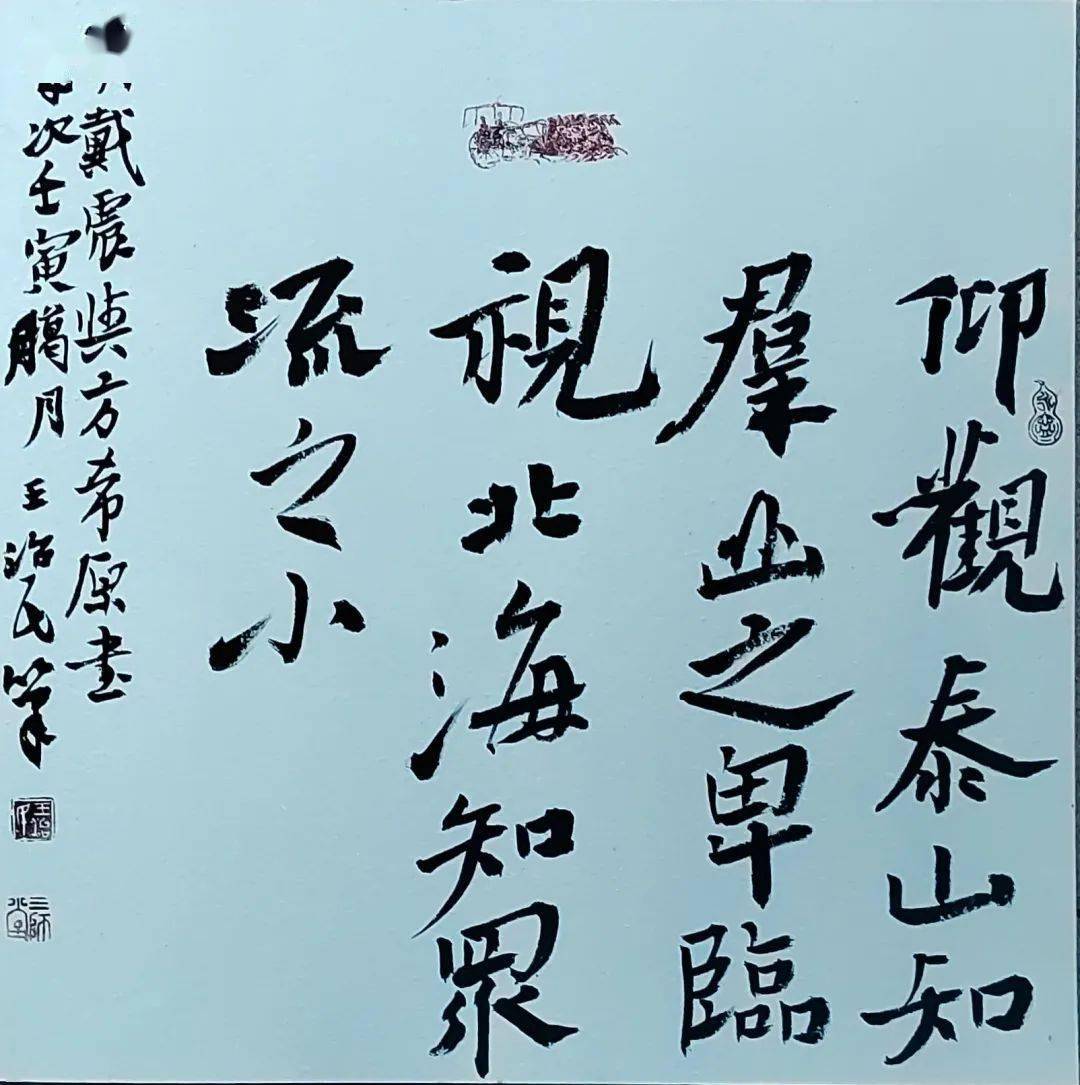 仰觀泰山知
羣山之卑臨
視北海知眾
流之小
戴震與方希原書
次壬寅臈月王治民筆